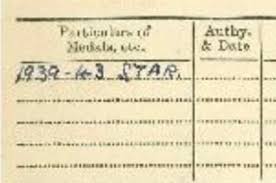 Particulars of
Medals, etc.
Authy.
& Date
1939-43 STAR.